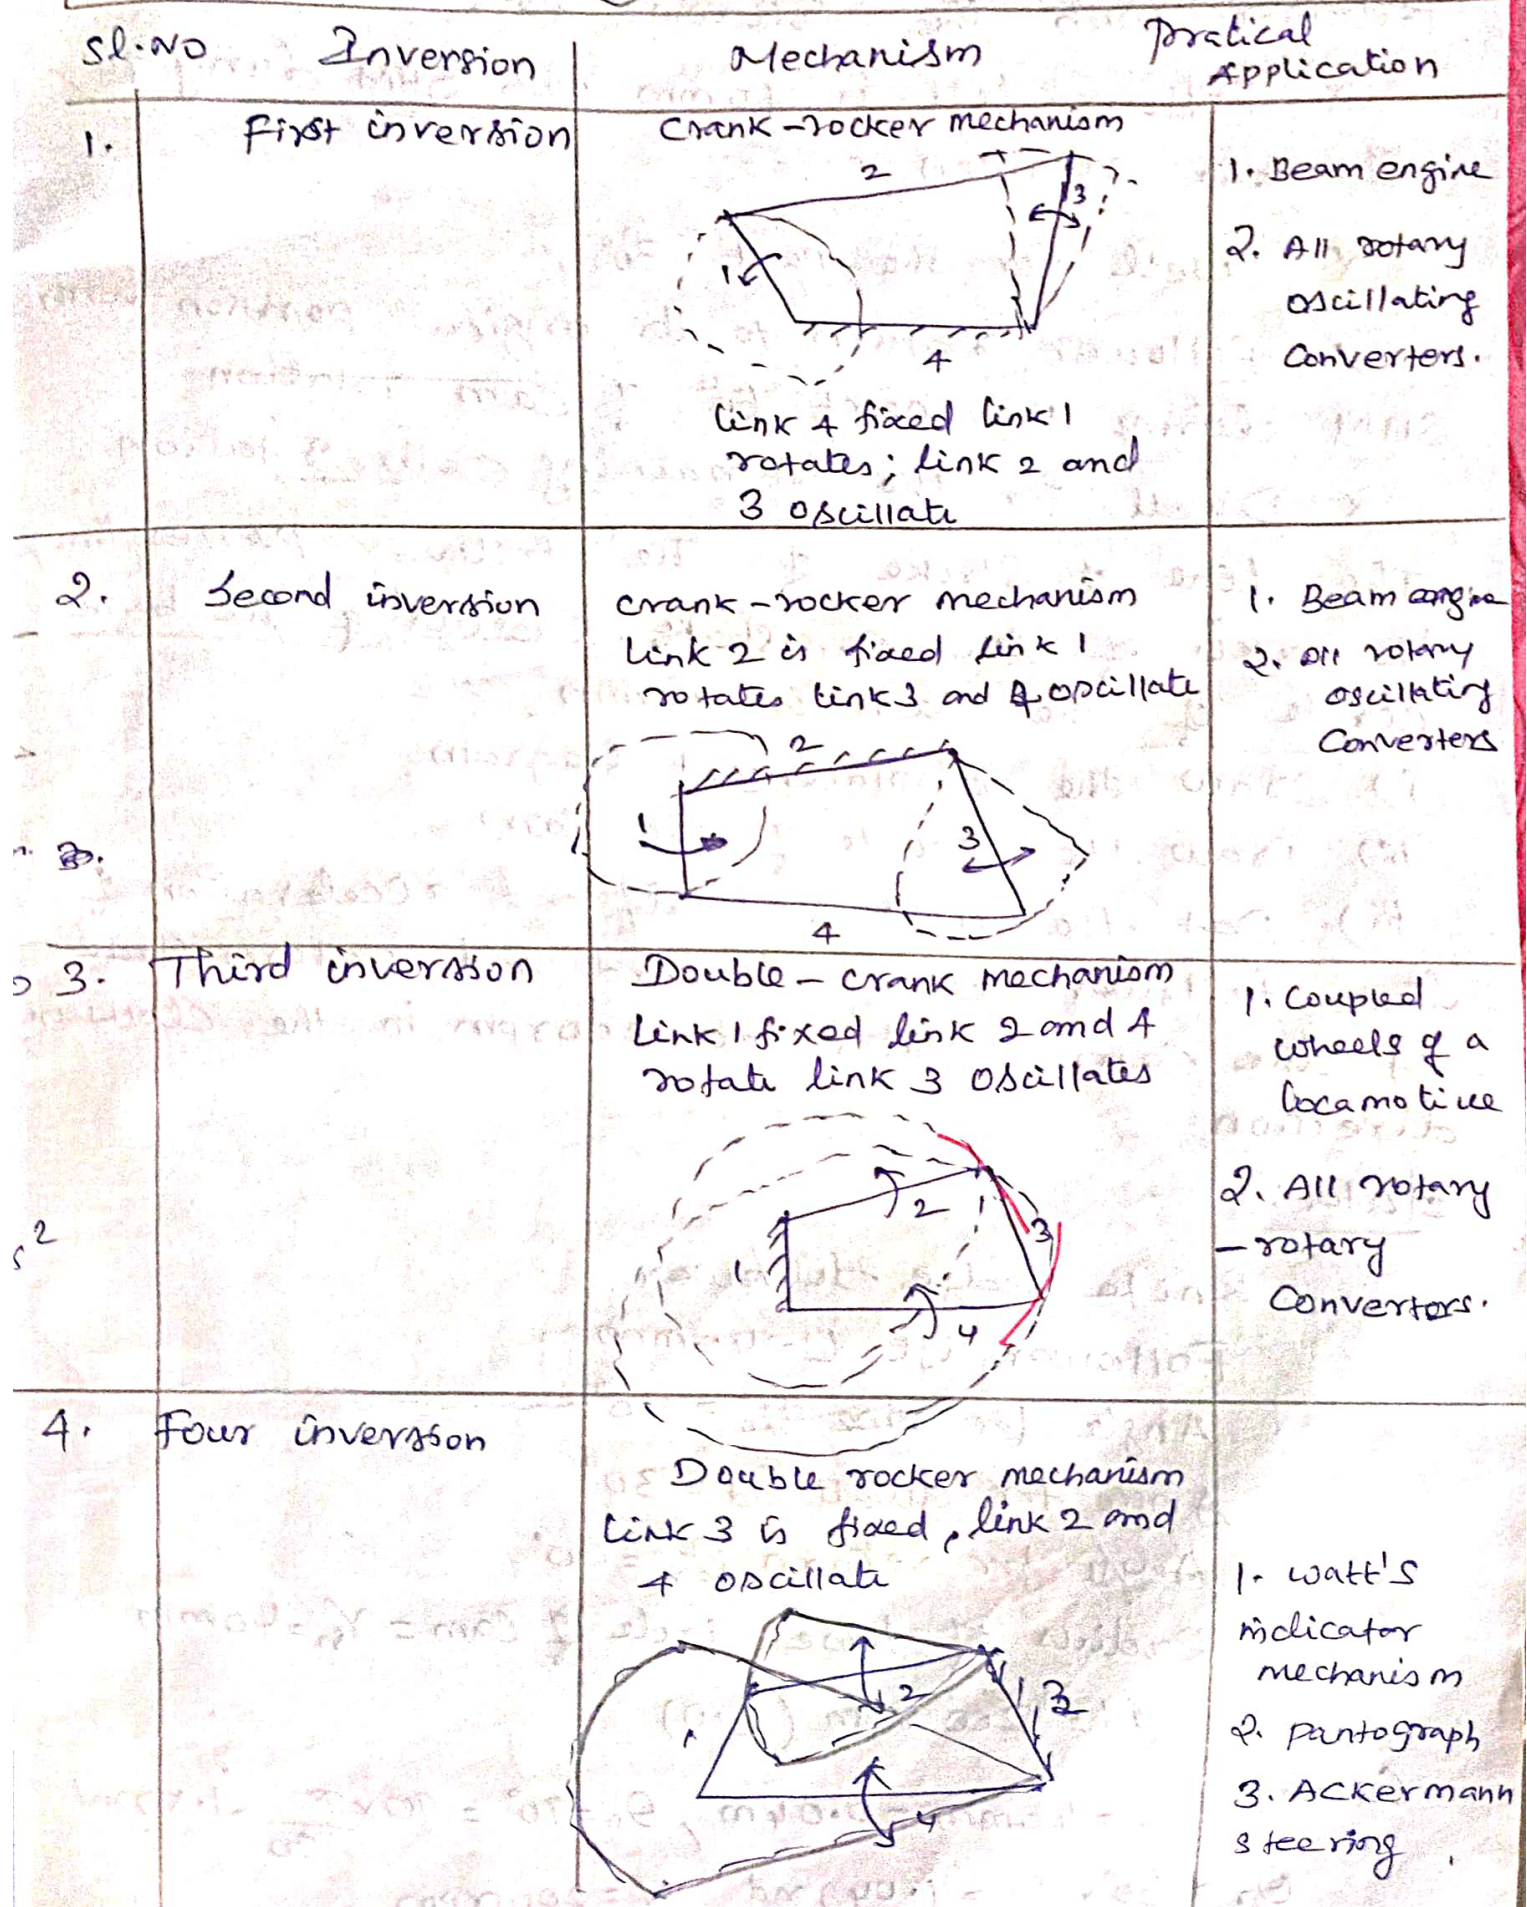 Sl.No Inversion Mechanism Pratical Application
1. First inversion Crank-rocker mechanism
2
3
1
4
link 4 fixed link 1
rotates; link 2 and
3 oscillate
1. Beam engine
2. All rotary
oscillating
Converters.
2. Second inversion crank-rocker mechanism
Link 2 is fixed link 1
rotates link 3 and 4 oscillate
2
1
3
4
1. Beam engine
2. All rotary
oscillating
Converters
3. Third inversion Double-crank mechanism
Link 1 fixed link 2 and 4
rotate link 3 oscillates
2
3
1
4
1. Coupled
wheels of a
locamotive
2. All rotary
-rotary
Convertors.
4. Four inversion
Double rocker mechanism
Link 3 is fixed, link 2 and
4 oscillate
2
3
1
4
1. Watt's
indicator
mechanism
2. Pantograph
3. Ackermann
steering